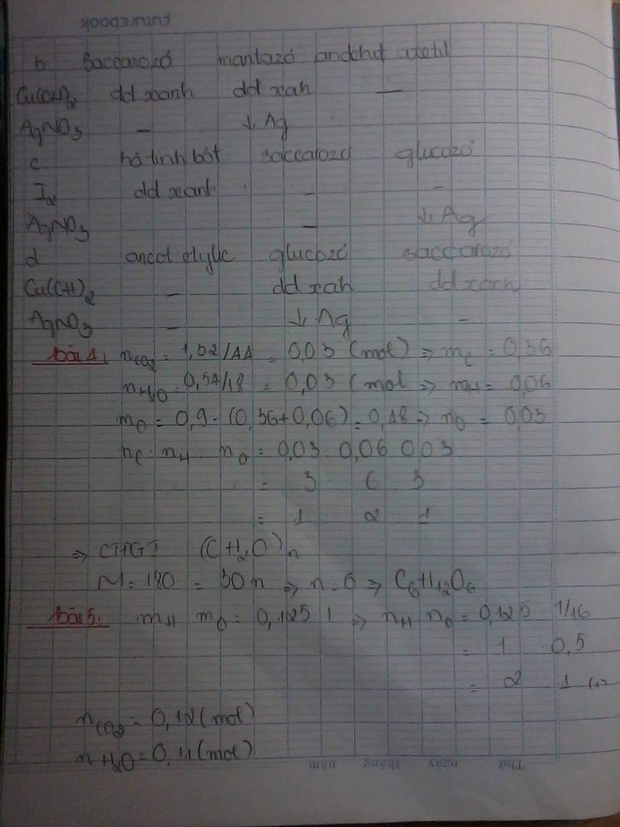 FUTUREBOOK
b. Saccarozơ mantozơ anđehit axetic
Cu(OH)2 dd xanh dd xah —
AgNO3 – ↓ Ag
c. hồ tinh bột saccarozơ glucozơ
I2 dd xanh – –
AgNO3 – ↓ Ag
d ancol etylic glucozơ saccarozơ
Cu(OH)2 – dd xah dd xanh
AgNO3 – ↓ Ag –
Bài 4: nCO2 = 1,32/44 = 0,03 (mol) ⇒ mC = 0,36
nH2O = 0,54/18 = 0,03 (mol ⇒ mH = 0,06
mO = 0,9 - (0,36+0,06) = 0,48 ⇒ nO = 0,03
nC nH nO = 0,03 0,06 0,03
= 3 6 3
= 1 2 1
⇒ CTĐGN (CH2O)n
M = 180 = 30n ⇒ n = 6 ⇒ C6H12O6
Bài 5: mH mO = 0,125 1 ⇒ nH nO = 0,125 1/16
= 1 0,5
= 2 1
nCO2 = 0,12 (mol)
nH2O = 0,11 (mol)
Thứ ngày tháng năm